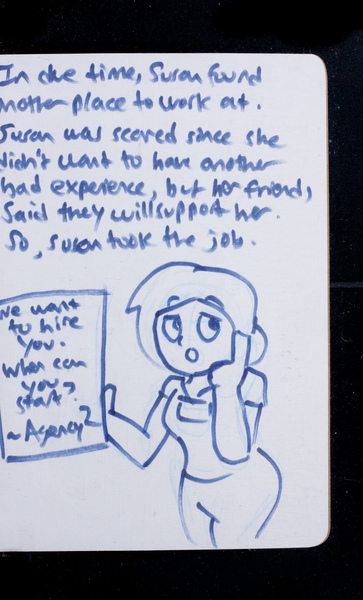 In due time, Susan found
nother place to work at.
Susan was scared since she
didn't want to have another
bad experience, but her friends
said they will support her.
So, Susan took the job.
we want
to hire
you.
When can
you
start?
~Agency 2